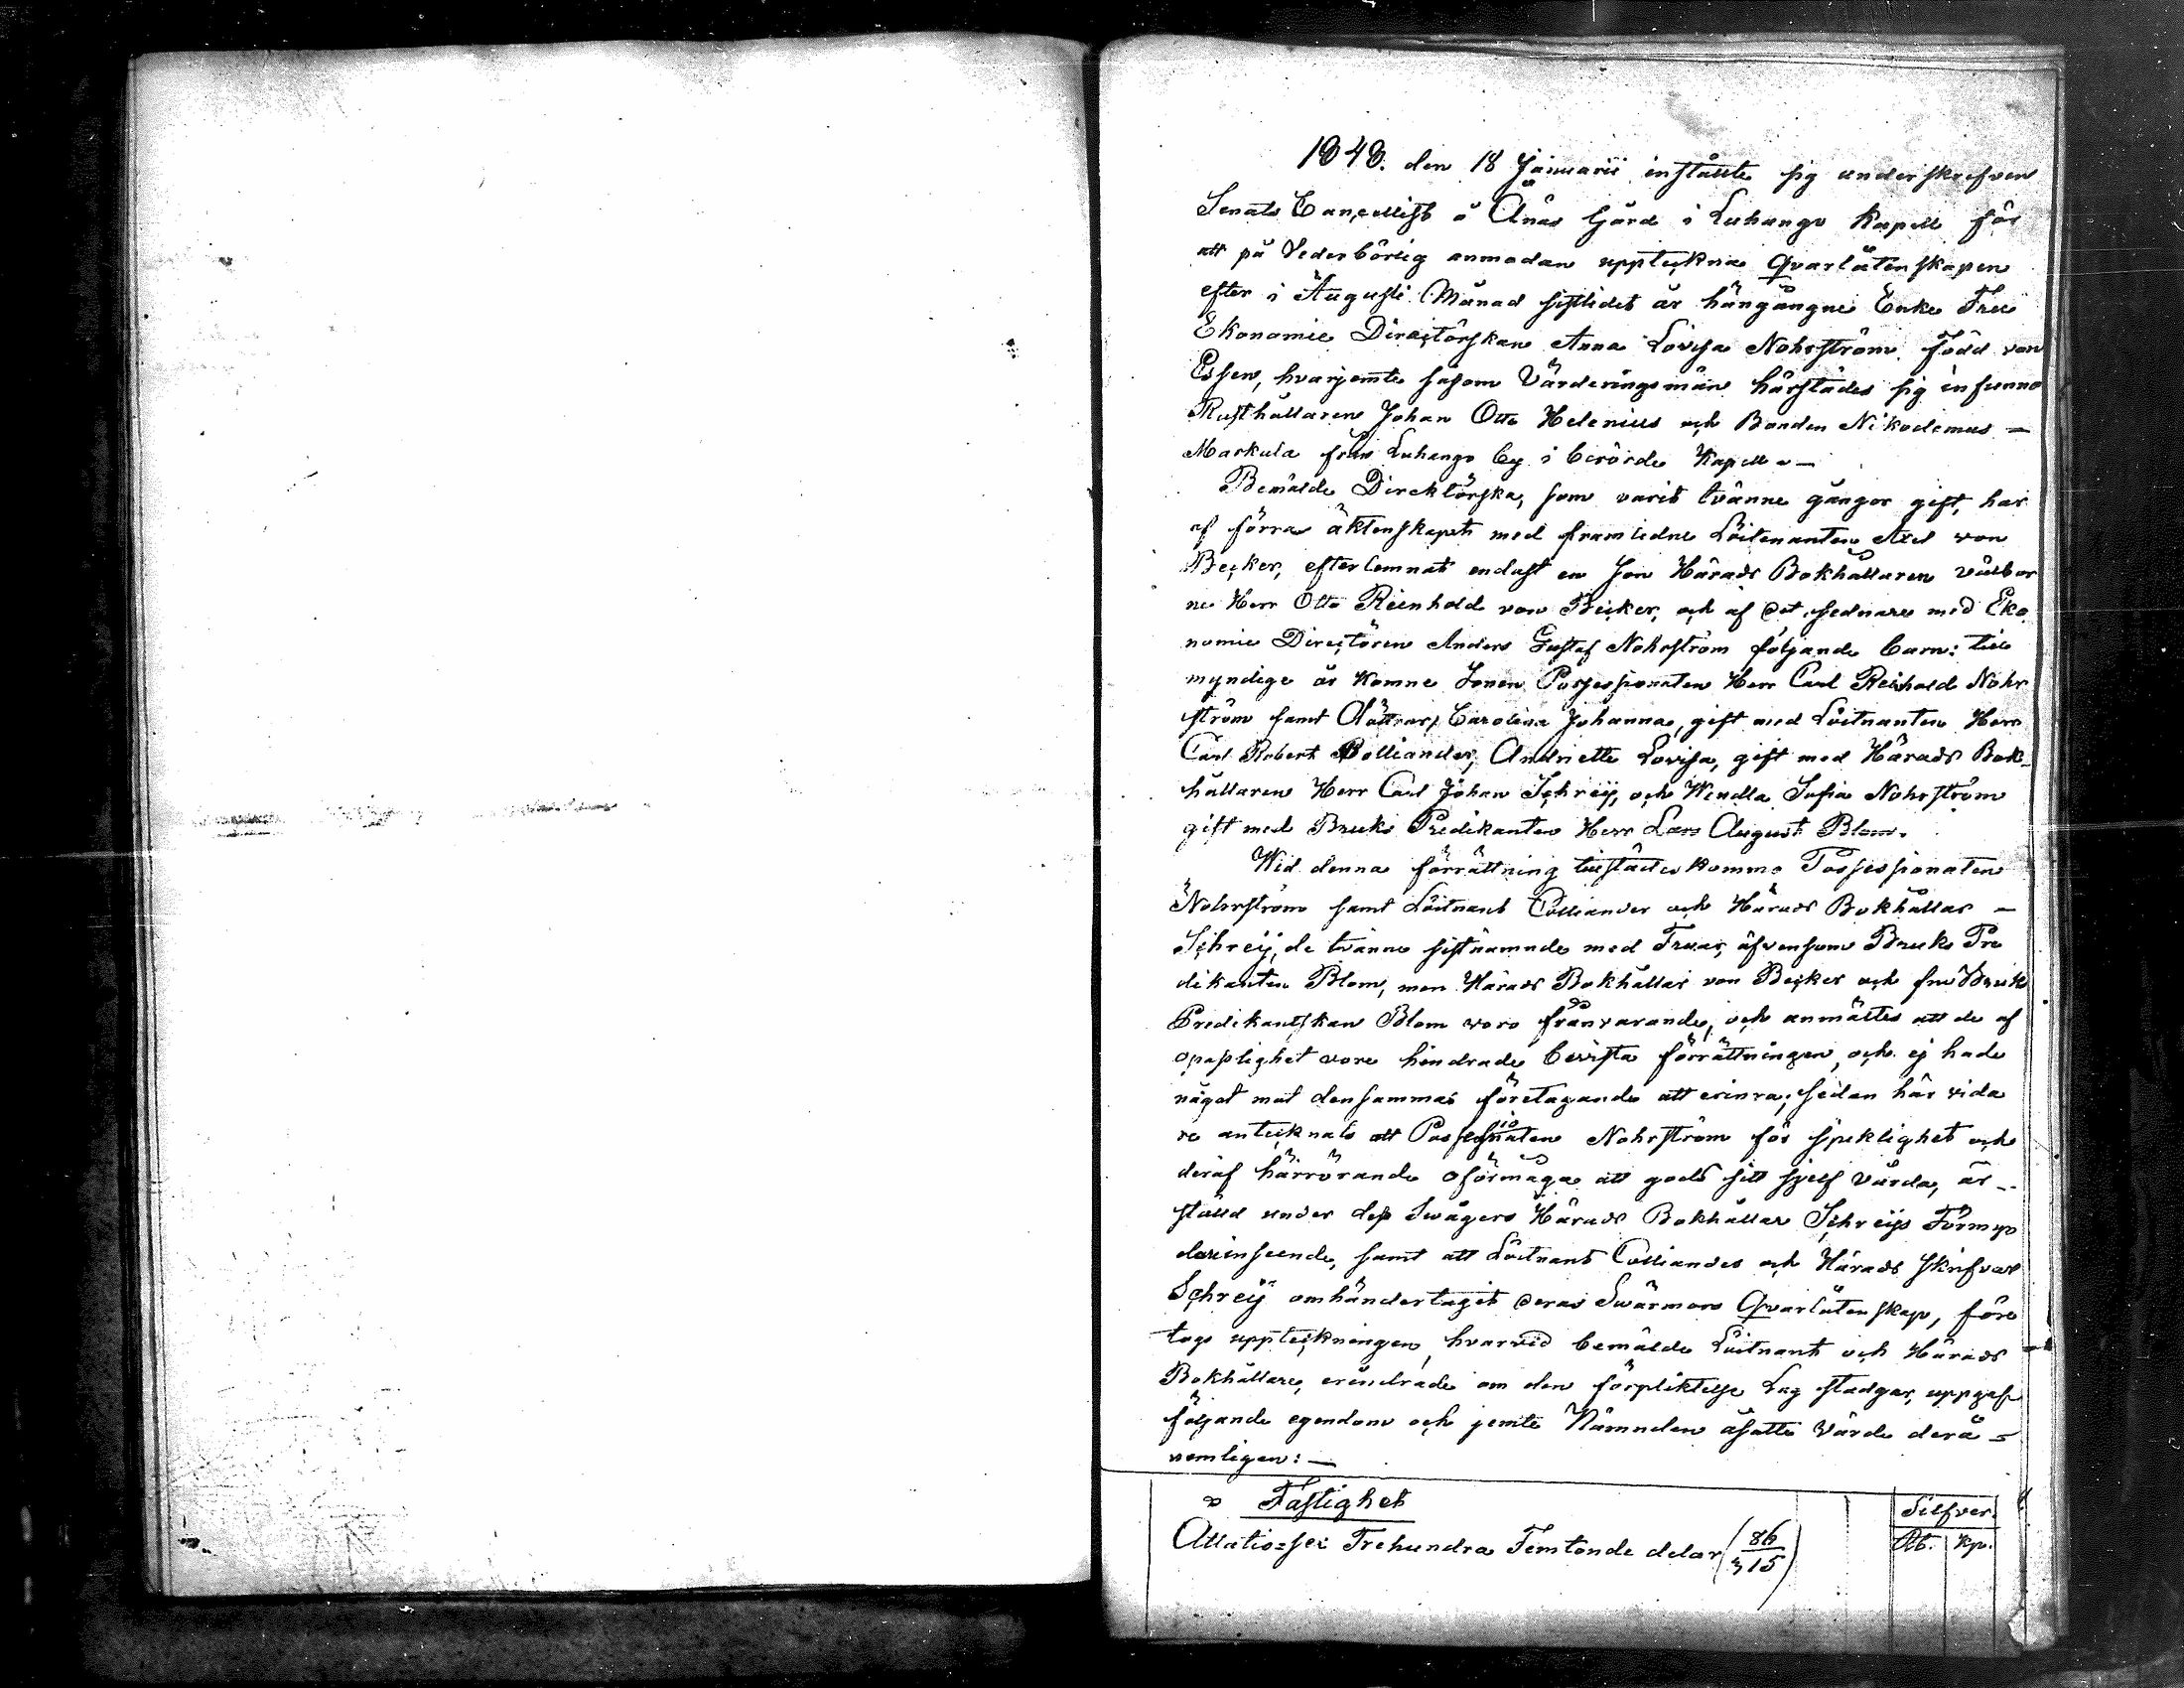 1848. den 18 Januarii instälte sig underskrefven
Senats Cancellist å Ånäs Gård i Luhango Kapell för
att på Vederbörlig anmodan uppteckna Qvarlåtenskapen
efter i Augusti Månad sistlidet år hängångne Enke Fru
Ekonomie Directörskan Anna Lovisa Nohrström född von
Essen, hvarjemte såsom Värderingsmän härstädes sig infunno
Rusthållaren Johan Otto Helenius och Bonden Nikodemus —
Markula från Luhango by i berörde Kapell. —
Bemälde Direktörska, som varit tvänne gångor gift, har
af förra äktenskapet med framledne Löitenanten Axel von
Becker, efterlemnat endast en Son Härads Bokhållaren välbor
ne Herr Otto Reinhold von Becker, och af det sednare med Eko
nomie Directören Anders Gustaf Nohrström följande barn: till
myndige år komne Sonen Possessionaten Herr Carl Reinhold Nohr
ström samt Döttrar, Carolina Johanna, gift med Löitnanten Herr
Carl Robert Colliander, Andriette Lovisa, gift med Härads Bok-
hållaren Herr Carl Johan Schreij, och Wendla Sofia Nohrström
gift med Bruks Predikanten Herr Lars August Blom.
Wid denna förrättning tillstädes kommo Possessionaten
Nohrström samt Löitnant Colliander och Härads Bokhållar —
Schreij, de tvänne sistnämnde med Fruar, äfvensom Bruks Pre
dikanten Blom, men Härads Bokhållar von Becker och fru Bruks
Predikantskan Blom voro frånvarande, och anmältes att de af
opasslighet vore hindrade bevista förrättningen, och ej hade
något mot densammas företagande att erinra; sedan här vida
re antecknats att Possessionaten Nohrström för sjuklighet och
deraf härrörande oförmåga att gods sitt sjelf vårda, är -
ställd under dess Swågers Härads Bokhållar Schreijs Förmyn
dareinseende, samt att Löitnant Colliander och Härads skrifvar
Schreij omhändertagit deras Swärmors Qvarlåtenskap, före
togs uppteckningen, hvarvid bemälde Löitnant och Härads
Bokhållare, erindrade om den förpliktelse Lag stadgar, uppgaf
följande egendom och jemte Nämnden åsatte värde derå -
nemligen: —
Fastighet
Silfver.
Åttatio=sex Trehundra Femtonde delar (86/315)
Rb. Kp.